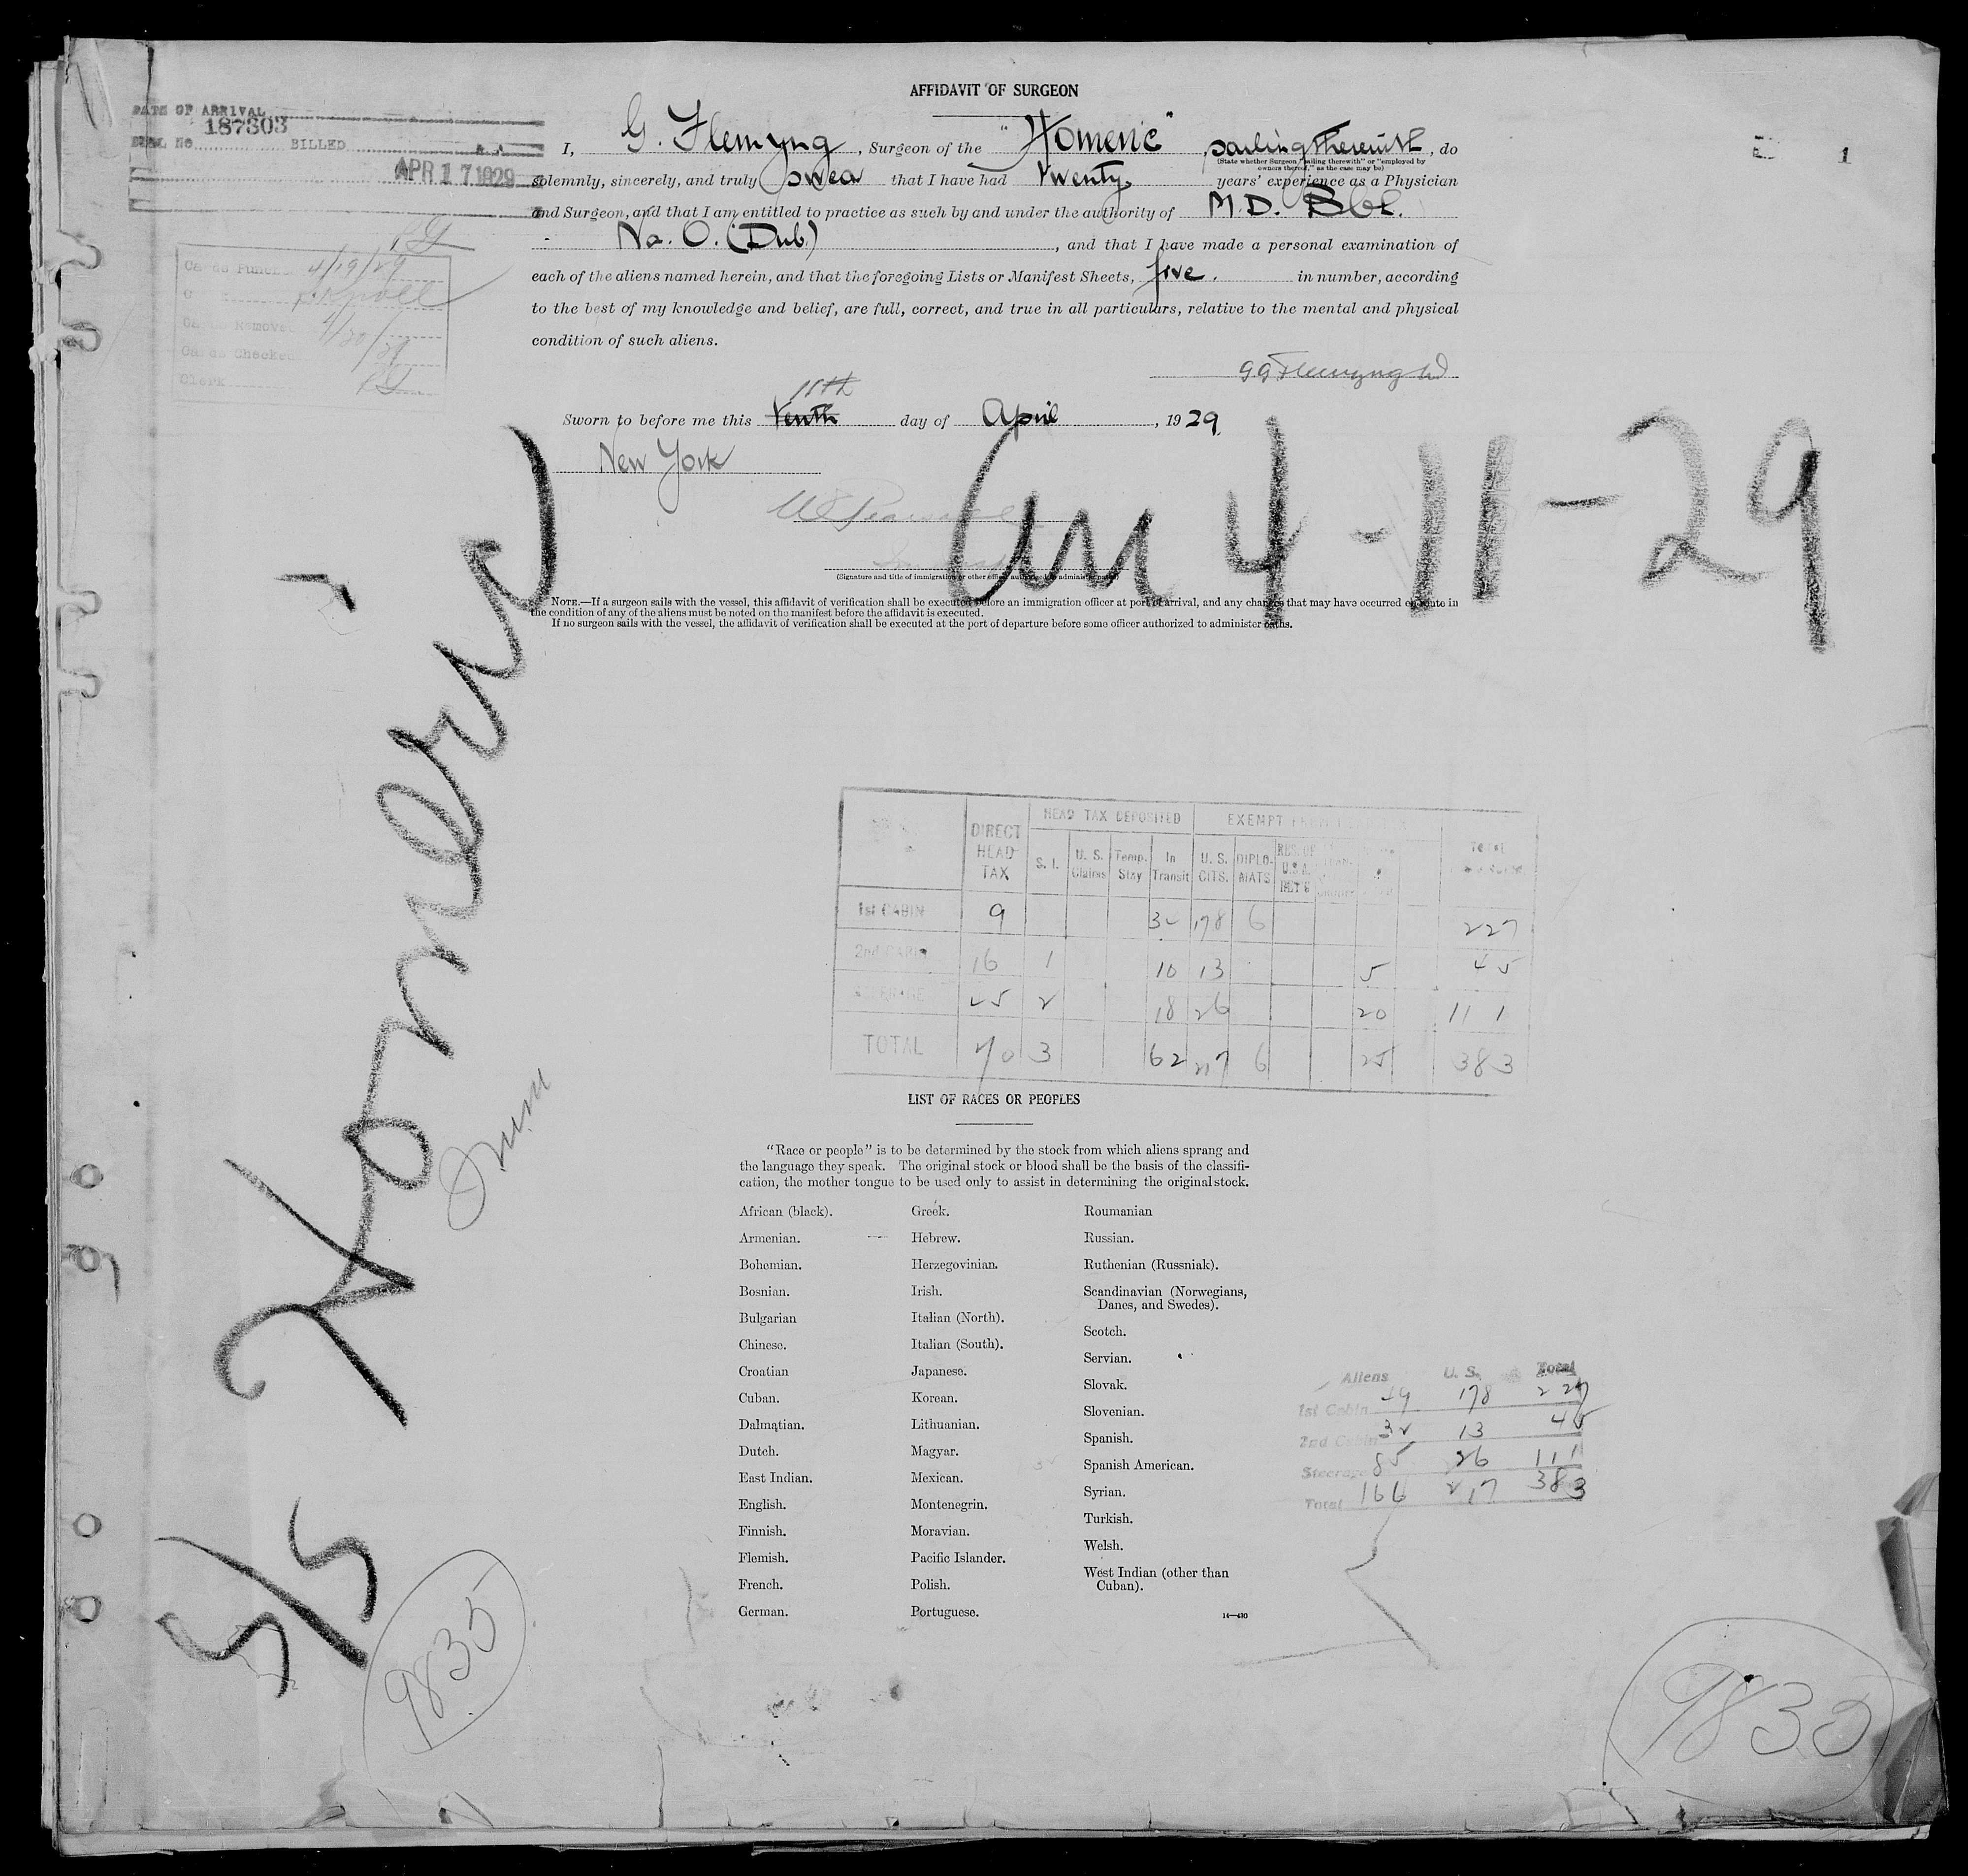 AFFIDAVIT OF SURGEON
DATE OF ARRIVAL
187303
SERIAL No BILLED
APR 17 1929
I, G. Flemyng, Surgeon of the "Homeric", sailing therewith, do
(State whether Surgeon "sailing therewith" or "employed by
owners thereof," as the case may be)
solemnly, sincerely, and truly swea that I have had twenty years' experience as a Physician
and Surgeon, and that I am entitled to practice as such by and under the authority of M.D.
(Dub.), and that I have made a personal examination of
each of the aliens named herein, and that the foregoing Lists or Manifest Sheets, five. in number, according
to the best of my knowledge and belief, are full, correct, and true in all particulars, relative to the mental and physical
condition of such aliens.
1
Cards Punched 4/19/29
Cards Removed 4/20/29
Cards Checked
Clerk
11th
Sworn to before me this tenth day of April, 1929
New York
4-11-29
(Signature and title of immigration or other officer authorized to administer oaths)
NOTE.—If a surgeon sails with the vessel, this affidavit of verification shall be executed before an immigration officer at port of arrival, and any changes that may have occurred en route in
the condition of any of the aliens must be noted on the manifest before the affidavit is executed.
If no surgeon sails with the vessel, the affidavit of verification shall be executed at the port of departure before some officer authorized to administer oaths.
S/S Homeric
HEAD TAX DEPOSITED EXEMPT FROM HEAD TAX
DIRECT HEAD TAX S. I. U. S. Claims Temp. Stay In Transit U. S. CITS. DIPLOMATS RES. OF U.S.A. Total
1st CABIN 9 32 178 6 227
2nd CABIN 16 1 10 13 5 45
STEERAGE 45 2 18 26 20 111
TOTAL 70 3 62 217 6 25 383
LIST OF RACES OR PEOPLES
"Race or people" is to be determined by the stock from which aliens sprang and
the language they speak. The original stock or blood shall be the basis of the classifi-
cation, the mother tongue to be used only to assist in determining the original stock.
African (black).
Armenian.
Bohemian.
Bosnian.
Bulgarian
Chinese.
Croatian
Cuban.
Dalmatian.
Dutch.
East Indian.
English.
Finnish.
Flemish.
French.
German.
Greek.
Hebrew.
Herzegovinian.
Irish.
Italian (North).
Italian (South).
Japanese.
Korean.
Lithuanian.
Magyar.
Mexican.
Montenegrin.
Moravian.
Pacific Islander.
Polish.
Portuguese.
Roumanian
Russian.
Ruthenian (Russniak).
Scandinavian (Norwegians,
Danes, and Swedes).
Scotch.
Servian.
Slovak.
Slovenian.
Spanish.
Spanish American.
Syrian.
Turkish.
Welsh.
West Indian (other than
Cuban).
14—430
Aliens U. S. Total
1st Cabin 49 178 227
2nd Cabin 32 13 45
Steerage 85 26 111
Total 166 217 383
9835
9835